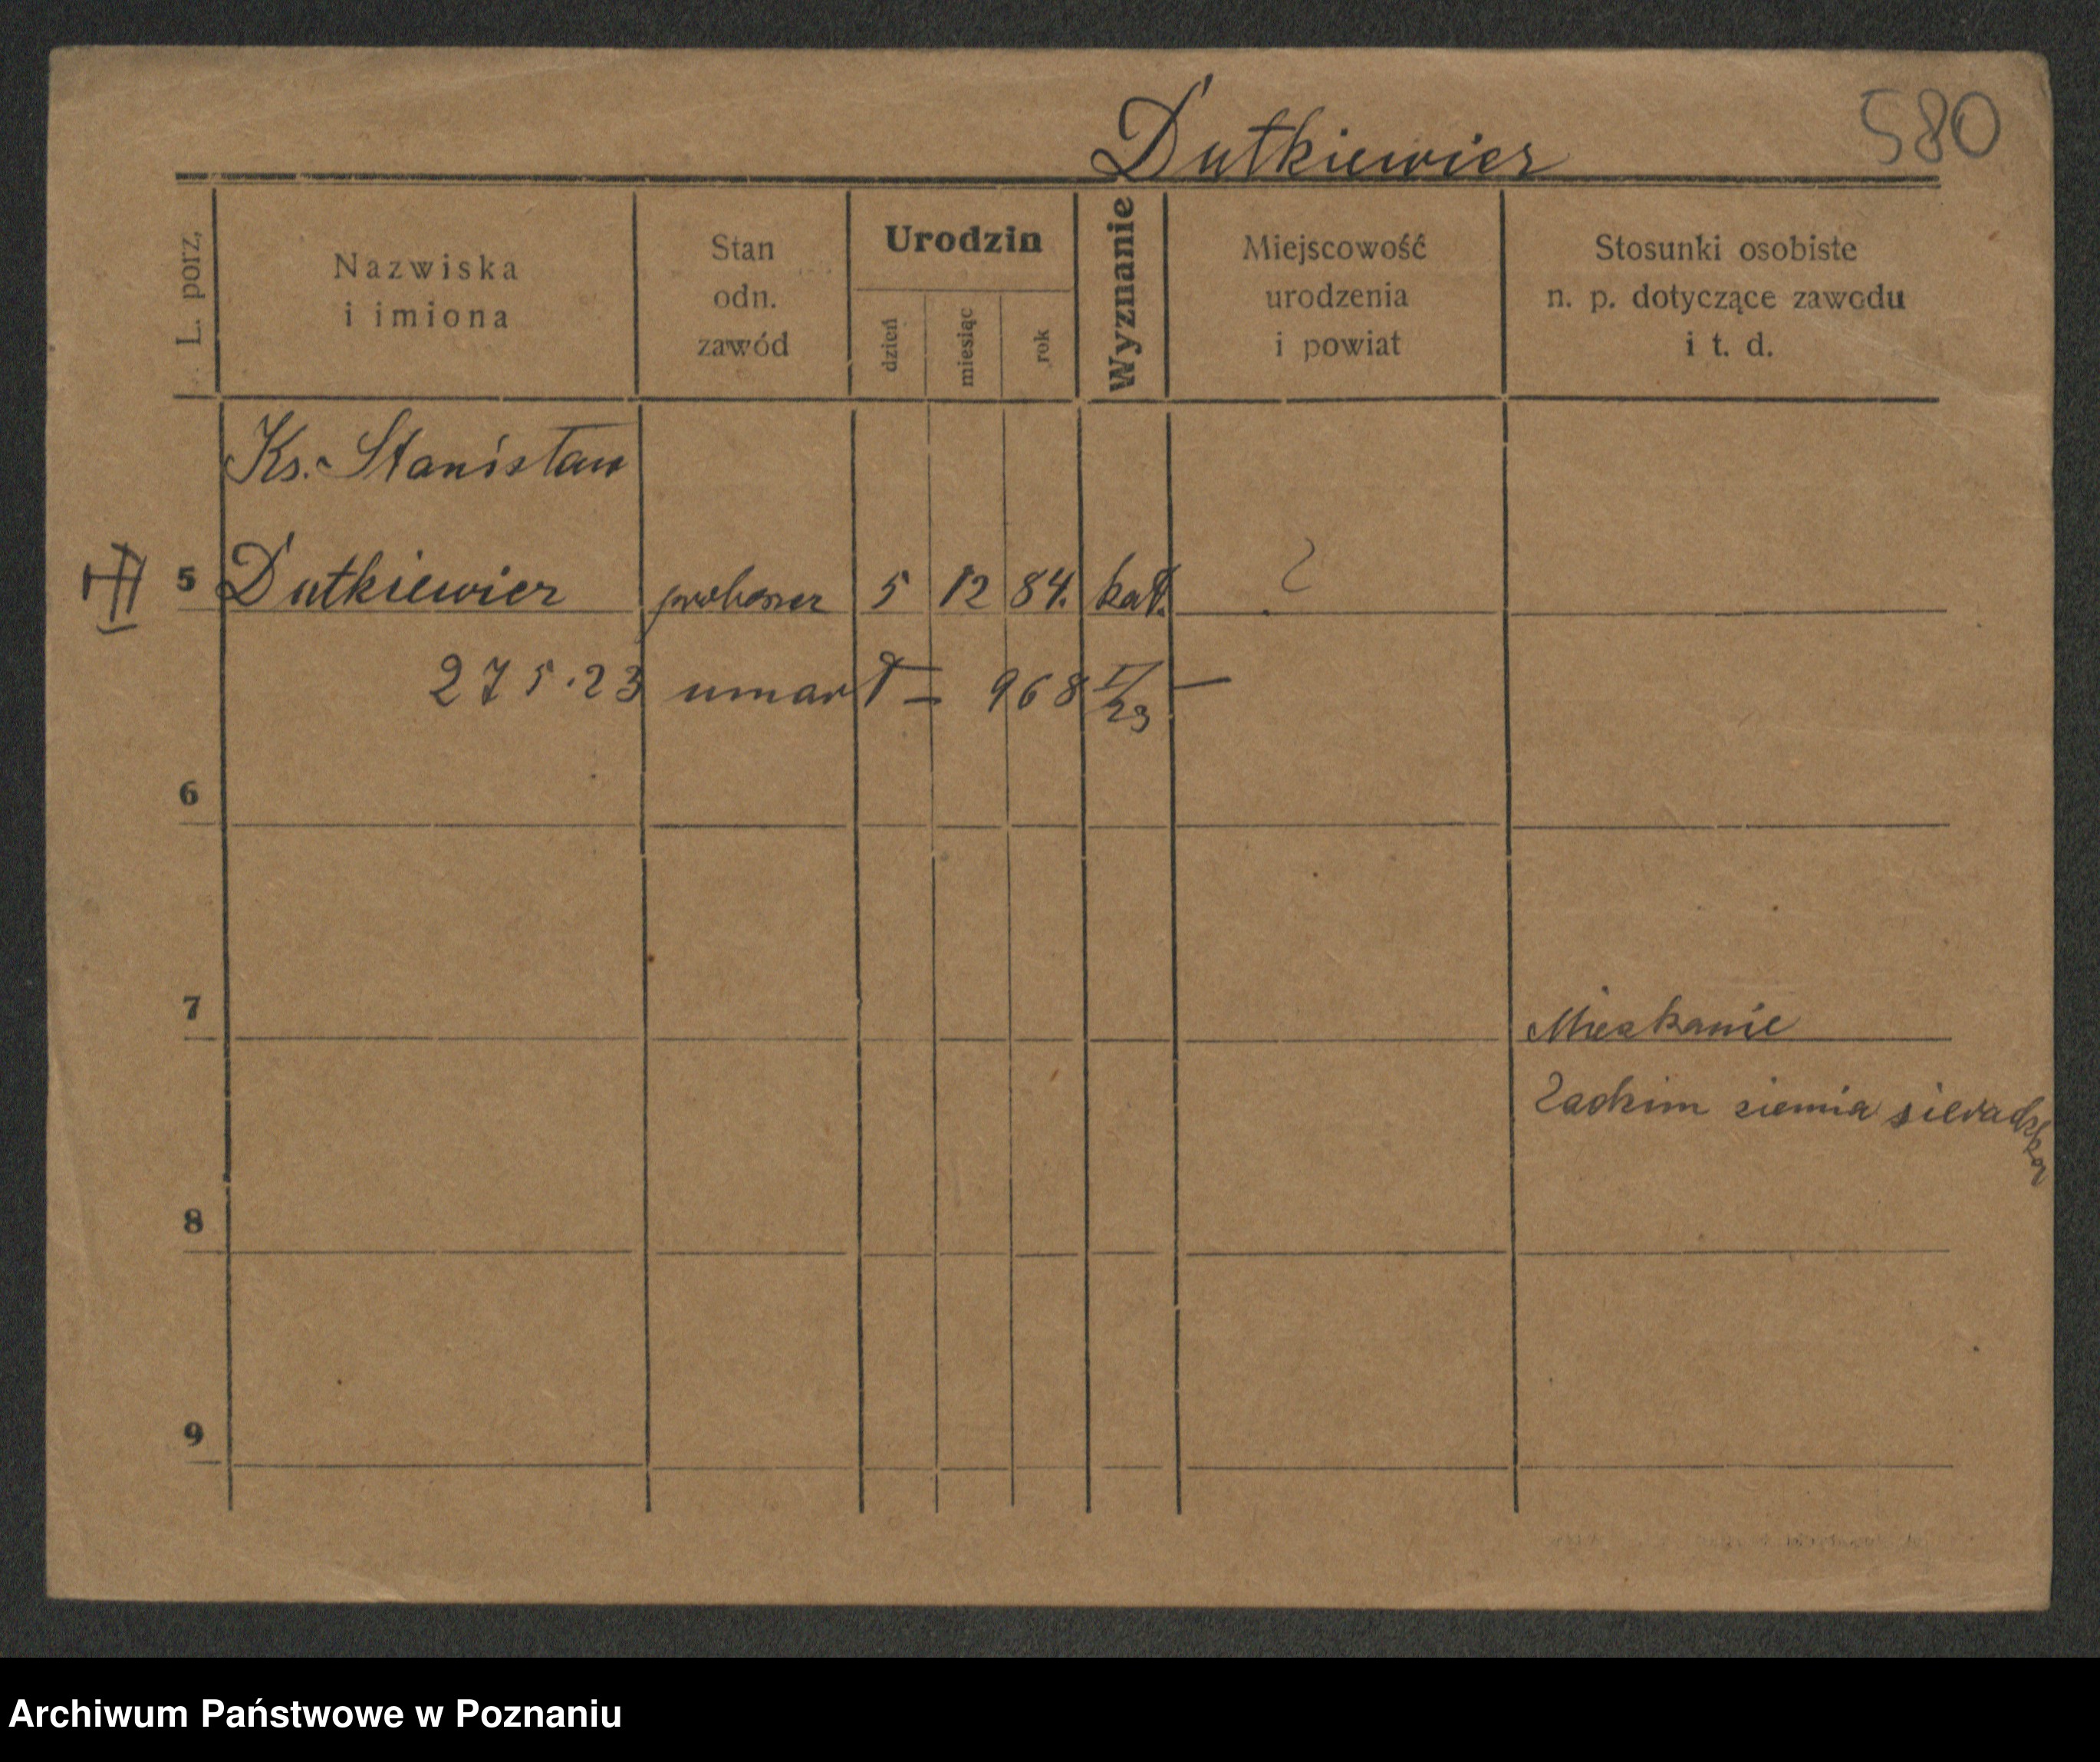 Dutkiewicz
580
L. porz.
Nazwiska
i imiona
Stan
odn.
zawód
Urodzin
dzień
miesiąc
rok
Wyznanie
Miejscowość
urodzenia
i powiat
Stosunki osobiste
n. p. dotyczące zawodu
i t. d.
Ks. Stanisław
5 Dutkiewicz proboszcz 5 12 84. kat. ?
27 5. 23 umarł = 968 I/23 —
6
7 Mieszkanie
ziemia sieradzka
8
9
Archiwum Państwowe w Poznaniu